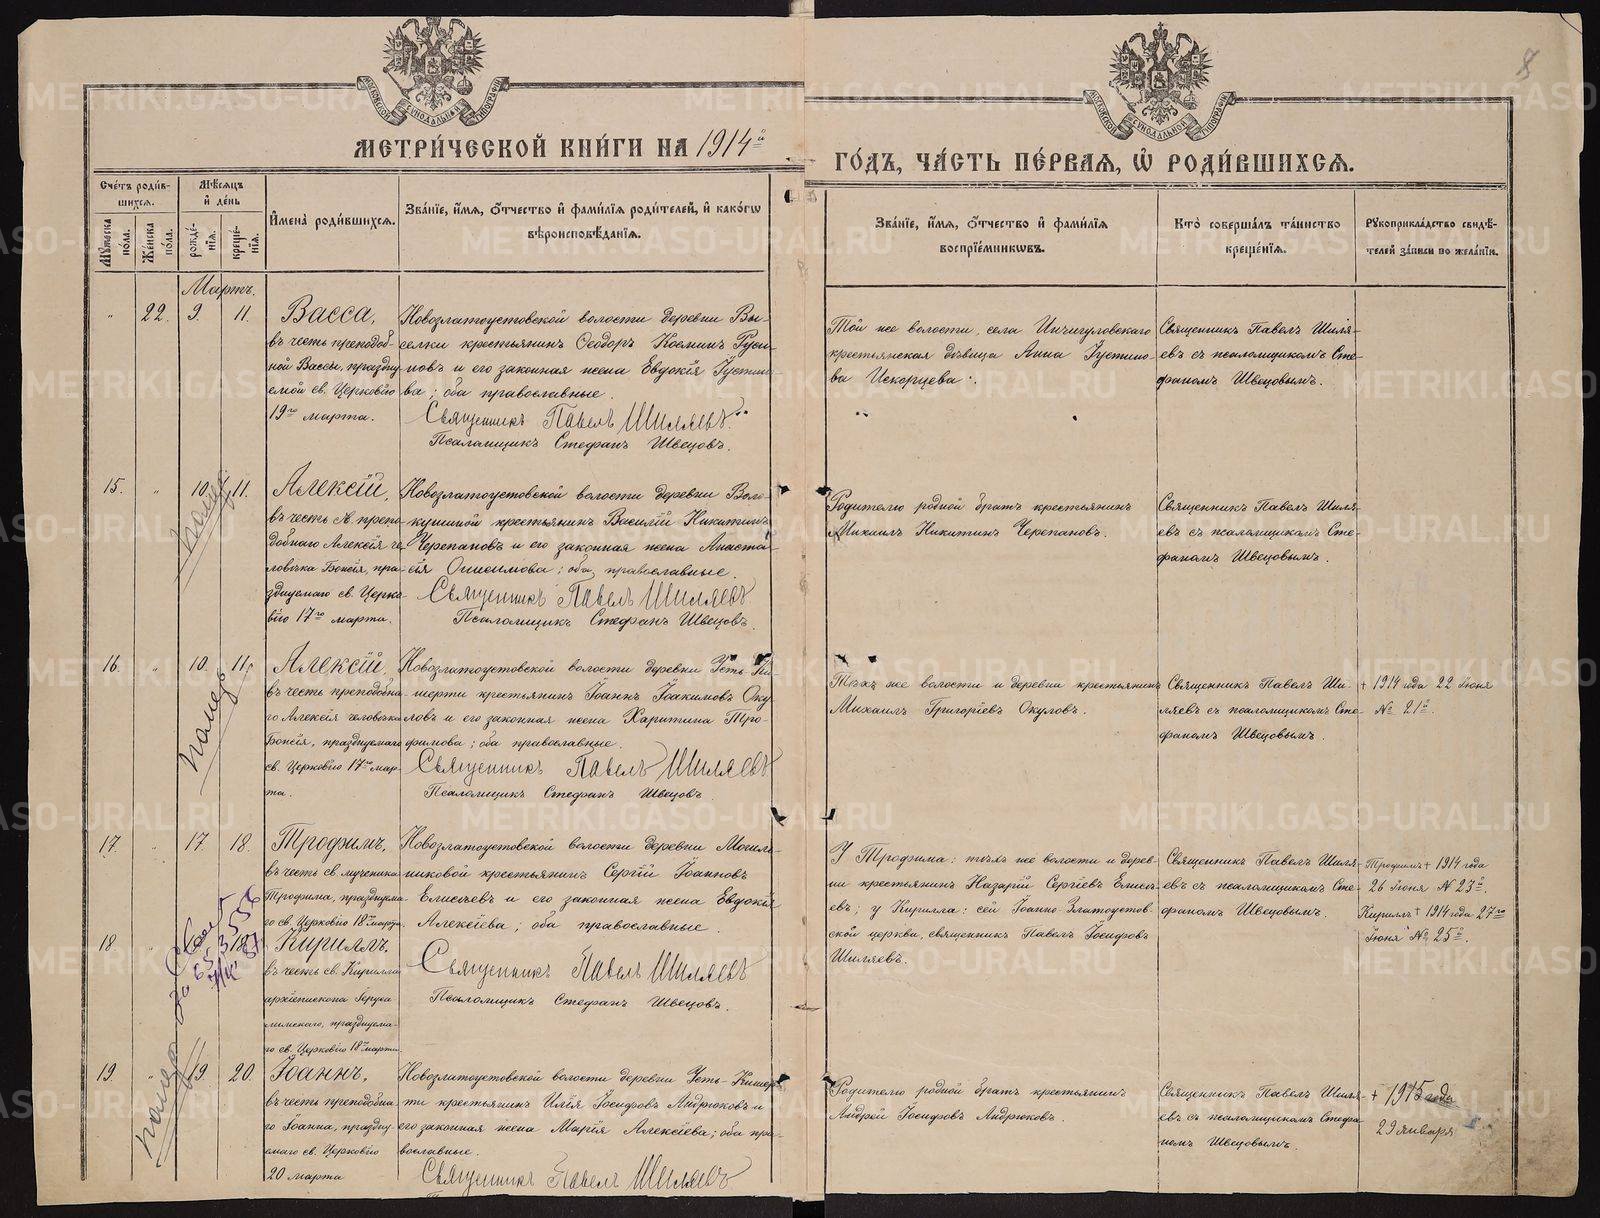 МЕТРИ́ЧЕСКОЙ КНИ́ГИ НА 1914й
ГО́ДЪ, ЧА́СТЬ ПЕ́РВАЯ, Ѡ҆ РОДИ́ВШИХСЯ.
8
Сче́тъ роди́в-
шихся.
Му́жеска
по́ла.
Же́нска
по́ла.
Мѣ́сяцъ
и҆ де́нь
рожде́-
нїя.
креще́-
нїя.
И҆мена̀ роди́вшихся.
Зва́нїе, и҆́мя, ѻ҆́тчество и҆ фами́лїя роди́телей, и҆ како́гѡ
вѣроисповѣ́данїя.
Зва́нїе, и҆́мя, ѻ҆́тчество и҆ фами́лїя
воспрїе́мникѡвъ.
Кто̀ соверша́лъ та́инство
креще́нїя.
Рꙋкоприкла́дство свидѣ́-
телей за́писи по жела́нїю.
Мартъ.
" 22. 9. 11.
Васса,
въ честь преподоб-
ной Вассы, праздну-
емой св. Церковію
19го марта.
Новозлатоустовской волости деревни Вы-
селки крестьянинъ Ѳеодоръ Косминъ Руси-
новъ и его законная жена Евдокія Густино-
ва; оба православные.
Священникъ Павелъ Шиляевъ.
Псаломщикъ Стефанъ Швецовъ.
Той же волости, села
крестьянская дѣвица Анна Густино-
ва Искорцева.
Священникъ Павелъ Шиля-
евъ съ псаломщикомъ Сте-
фаномъ Швецовымъ.
15. " 10. 11.
Алексій,
въ честь св. препо-
добнаго Алексія че-
ловѣка Божія, пра-
зднуемаго св. Церко-
вію 17го марта.
Новозлатоустовской волости деревни Воло-
кушиной крестьянинъ Василій Никитинъ
Черепановъ и его законная жена Анаста-
сія Онисимова; оба православные.
Священникъ Павелъ Шиляевъ
Псаломщикъ Стефанъ Швецовъ.
Родителю родной братъ крестьянинъ
Михаилъ Никитинъ Черепановъ.
Священникъ Павелъ Шиля-
евъ съ псаломщикомъ Сте-
фаномъ Швецовымъ.
16. " 10. 11.
Алексій,
въ честь преподобна-
го Алексія человѣка
Божія, празднуемаго
св. Церковію 17го мар-
та.
Новозлатоустовской волости деревни Усть-Ки-
шерти крестьянинъ Іоаннъ Іоакимовъ Оку-
ловъ и его законная жена Харитина Тро-
фимова; оба православные.
Священникъ Павелъ Шиляевъ
Псаломщикъ Стефанъ Швецовъ.
Тѣхъ же волости и деревни крестьянинъ
Михаилъ Григоріевъ Окуловъ.
Священникъ Павелъ Ши-
ляевъ съ псаломщикомъ Сте-
фаномъ Швецовымъ.
+ 1914 года 22 іюня
№ 21й.
17. " 17. 18.
Трофимъ,
въ честь св. мученика
Трофима, празднуема-
го св. Церковію 18го марта.
Новозлатоустовской волости деревни Могиль-
никовой крестьянинъ Сергій Іоанновъ
Елисѣевъ и его законная жена Евдокія
Алексѣева; оба православные.
18.
Кириллъ,
въ честь св. Кирилла
архіепископа Іеруса-
лимскаго, празднуема-
го св. Церковію 18го марта.
Священникъ Павелъ Шиляевъ
Псаломщикъ Стефанъ Швецовъ.
У Трофима: тѣхъ же волости и дерев-
ни крестьянинъ Назарій Сергіевъ Елисѣ-
евъ; у Кирилла: сей Іоанно-Златоустов-
ской церкви, священникъ Павелъ Іосифовъ
Шиляевъ.
Священникъ Павелъ Шиля-
евъ съ псаломщикомъ Сте-
фаномъ Швецовымъ.
Трофимъ + 1914 года
26 іюня № 23й.
Кириллъ + 1914 года 27го
іюня № 25й.
19. " 19. 20.
Іоаннъ,
въ честь преподобна-
го Іоанна, праздну-
емаго св. Церковію
20 марта
Новозлатоустовской волости деревни Усть-Кишер-
ти крестьянинъ Илія Іосифовъ Андрюковъ и
его законная жена Марія Алексѣева; оба пра-
вославные.
Священникъ Павелъ Шиляевъ
Родителю родной братъ крестьянинъ
Андрей Іосифовъ Андрюковъ.
Священникъ Павелъ Шиля-
евъ съ псаломщикомъ Стефа-
номъ Швецовымъ.
+ 1915 года
29 января
METRIKI.GASO-URAL.RU